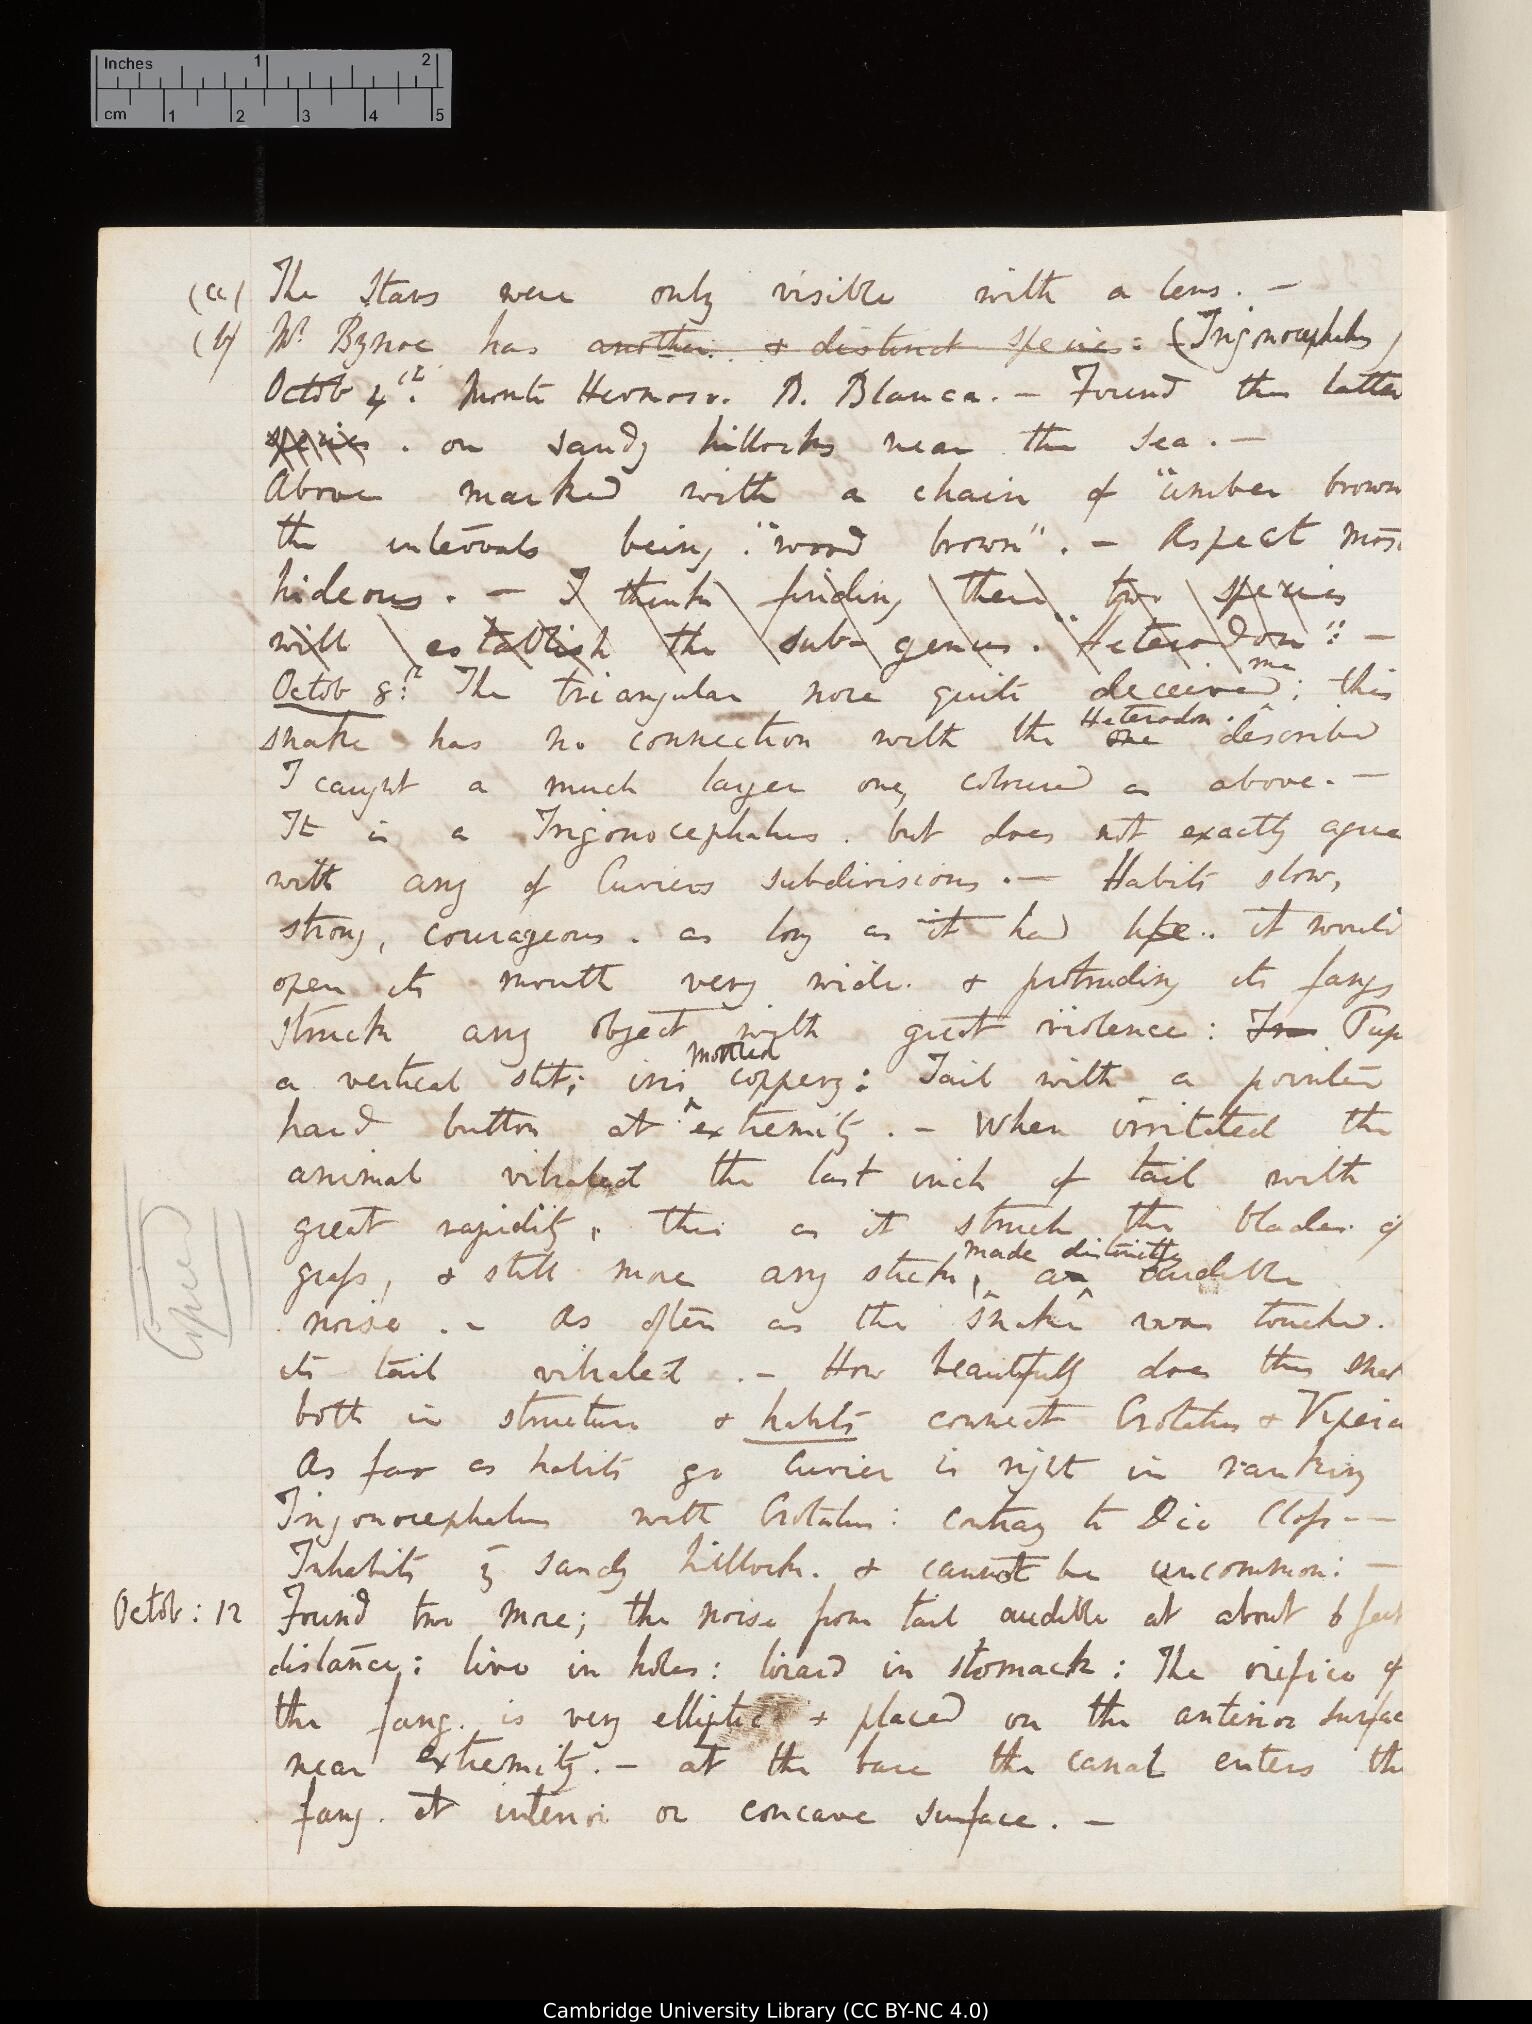 Inches 1 2
cm 1 2 3 4 5
(a) The stars were only visible with a lens. —
(b) Mr Bynoe has another & distinct species: (Trigonocephalus)
Octob 4th. Monte Hermoso. B. Blanca. — Found this latter
species. on sandy hillocks near the sea. —
Above marked with a chain of "umber brown
the intervals being "wood brown". — Aspect most
hideous. — I think finding these two species
will establish the sub-genus. "Heterodon": —
Octob 8th The triangular nose quite deceived me; this
snake has no connection with the one Heterodon. described
I caught a much larger one, coloured as above. —
It is a Trigonocephalus. but does not exactly agree
with any of Cuviers subdivisions. — Habits slow,
strong, courageous. as long as it had life.. it would
open its mouth very wide. & protruding its fangs
struck any object with great violence: Iris Pup
a vertical slit; iris mottled coppery: Tail with a pointed
hard button at extremity. — When irritated the
animal vibrated the last inch of tail with
great rapidity, this as it struck the blades of
grass, & still more any stick, made a distinctly audible
noise. — As often as the snake was touched.
its tail vibrated. — How beautifully does this snak
both in structure & habits connect Crotalus & Vipera
As far as habits go Cuvier is right in ranking
Trigonocephalus with Crotalus: contrary to Dic Class — —
Inhabits sandy hillock. & cannot be uncommon: —
Octob: 12 Found two more; the noise from tail audible at about 6 feet
distance: live in holes: lizard in stomach: The orifice of
the fang. is very elliptic & placed on the anterior surface
near extremity. — at the base the canal enters the
fang. at interior or concave surface. —
Copied
Cambridge University Library (CC BY-NC 4.0)